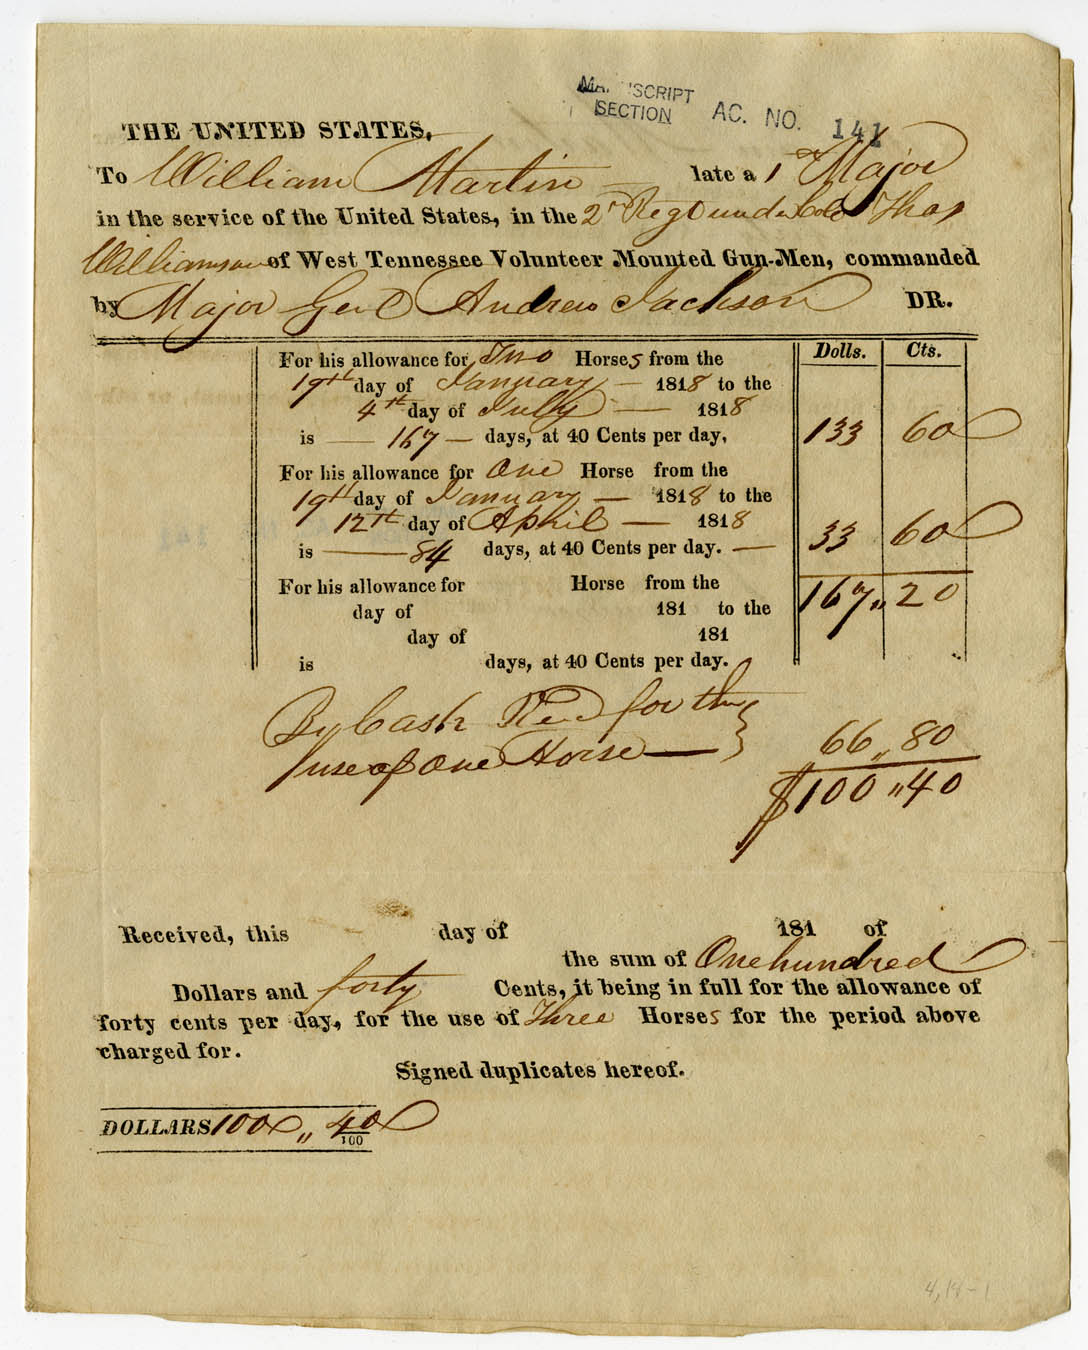 MANUSCRIPT
SECTION AC. NO. 141
THE UNITED STATES,
To William Martin late a 1st Major
in the service of the United States, in the 2d Regt under Colo Thos
Williamson of West Tennessee Volunteer Mounted Gun-Men, commanded
by Major Genl Andrew Jackson DR.
Dolls. Cts.
For his allowance for Two Horses from the
19th day of January — 1818 to the
4th day of July — 1818
is — 167 — days, at 40 Cents per day, 133 60
For his allowance for One Horse from the
19th day of January — 1818 to the
12th day of April — 1818
is — 84 days, at 40 Cents per day. — 33 60
For his allowance for Horse from the 167,, 20
day of 181 to the
day of 181
is days, at 40 Cents per day.
By Cash Recd for the
use of One Horse — 66,, 80
$100 ,,40
Received, this day of 181 of
the sum of One hundred
Dollars and forty Cents, it being in full for the allowance of
forty cents per day, for the use of Three Horses for the period above
charged for.
Signed duplicates hereof.
DOLLARS 100 ,, 40/100